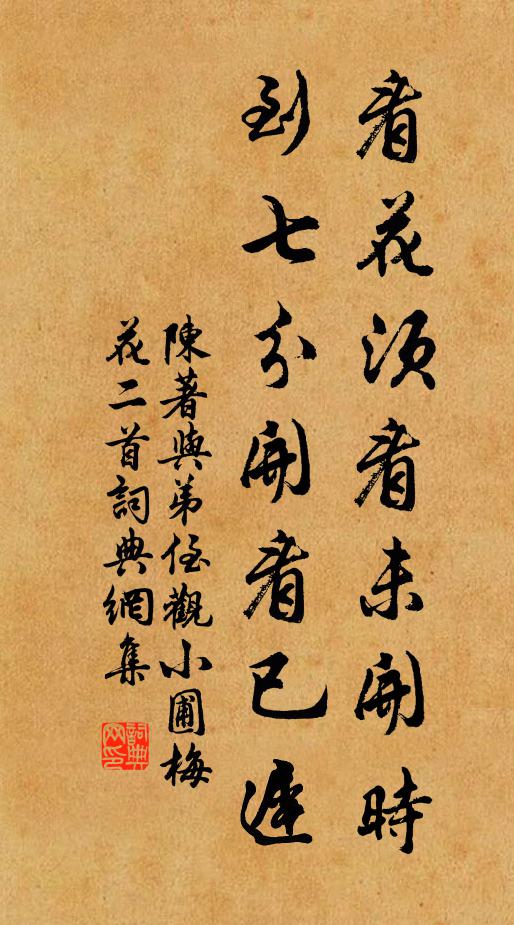 看花須看未開時
到七分開看已遲
陳著與弟侄觀小圃梅
花二首詞典網集
詞典
网印